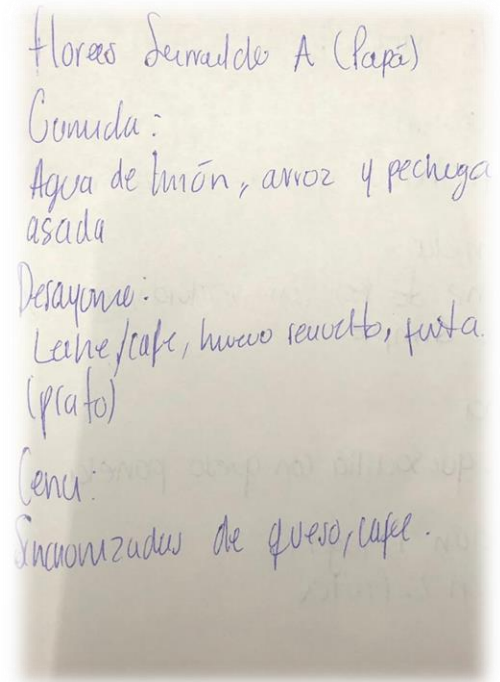 Flores A (Papá)
Comida:
Agua de limón, arroz y pechuga
asada
Desayuno:
Leche/cafe, huevo revuelto, fruta.
(plato)
Cena:
Sincronizadas de queso, cafe.